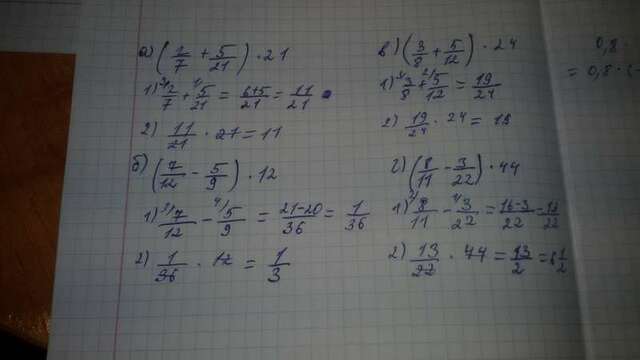 а) (2/7 + 5/21) · 21
1) ³⁾2/7 + ¹⁾5/21 = 6+5/21 = 11/21
2) 11/21 · 21 = 11
б) (7/12 − 5/9) · 12
1) ³⁾7/12 − ⁴⁾5/9 = 21−20/36 = 1/36
2) 1/36 · 12 = 1/3
в) (3/8 + 5/12) · 24
1) ³⁾3/8 + ²⁾5/12 = 19/24
2) 19/24 · 24 = 19
г) (8/11 − 3/22) · 44
1) ²⁾8/11 − ¹⁾3/22 = 16−3/22 = 13/22
2) 13/22 · 44 = 13/2 = 6 1/2
0,8 ·
= 0,8 · (